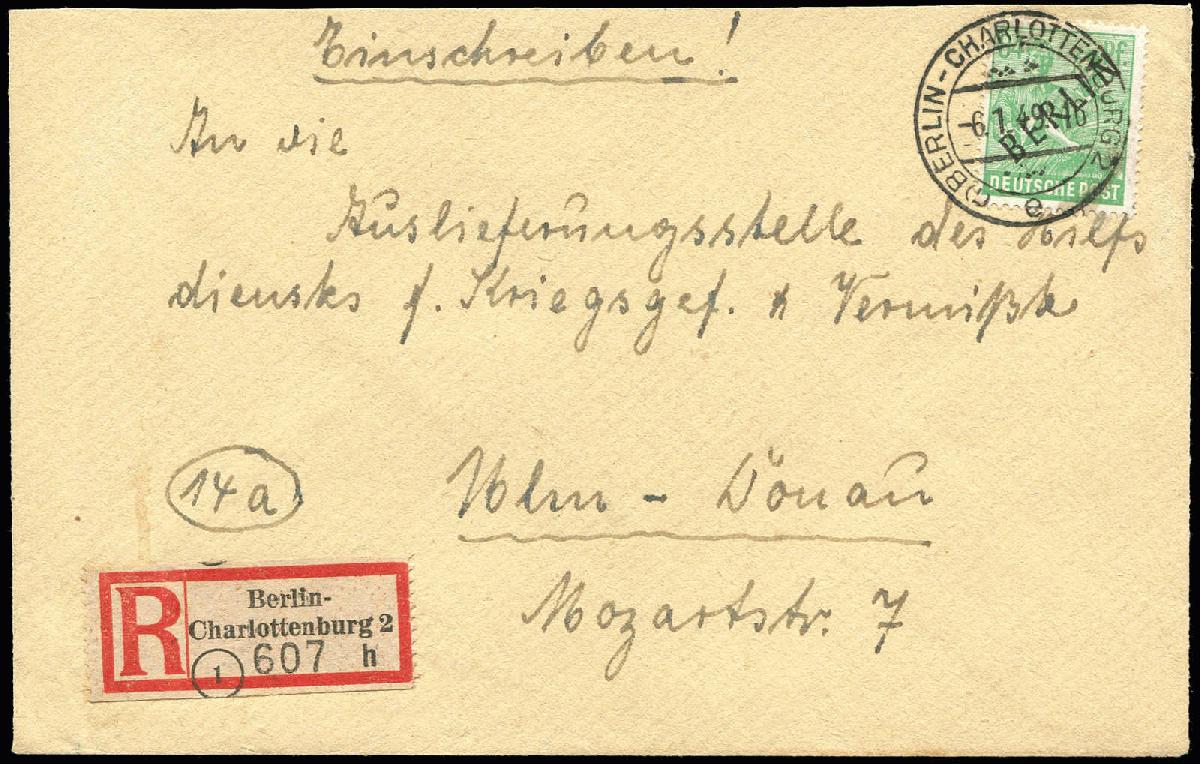 Einschreiben!
An die
Auslieferungsstelle des Hilfs
diensts f. Kriegsgef. u Vermißte
14a
Ulm - Donau
Mozartstr. 7
(1) BERLIN-CHARLOTTENBURG 2
-6.1.49
e
BERLIN
DEUTSCHE POST
R
Berlin-
Charlottenburg 2
1 607 h